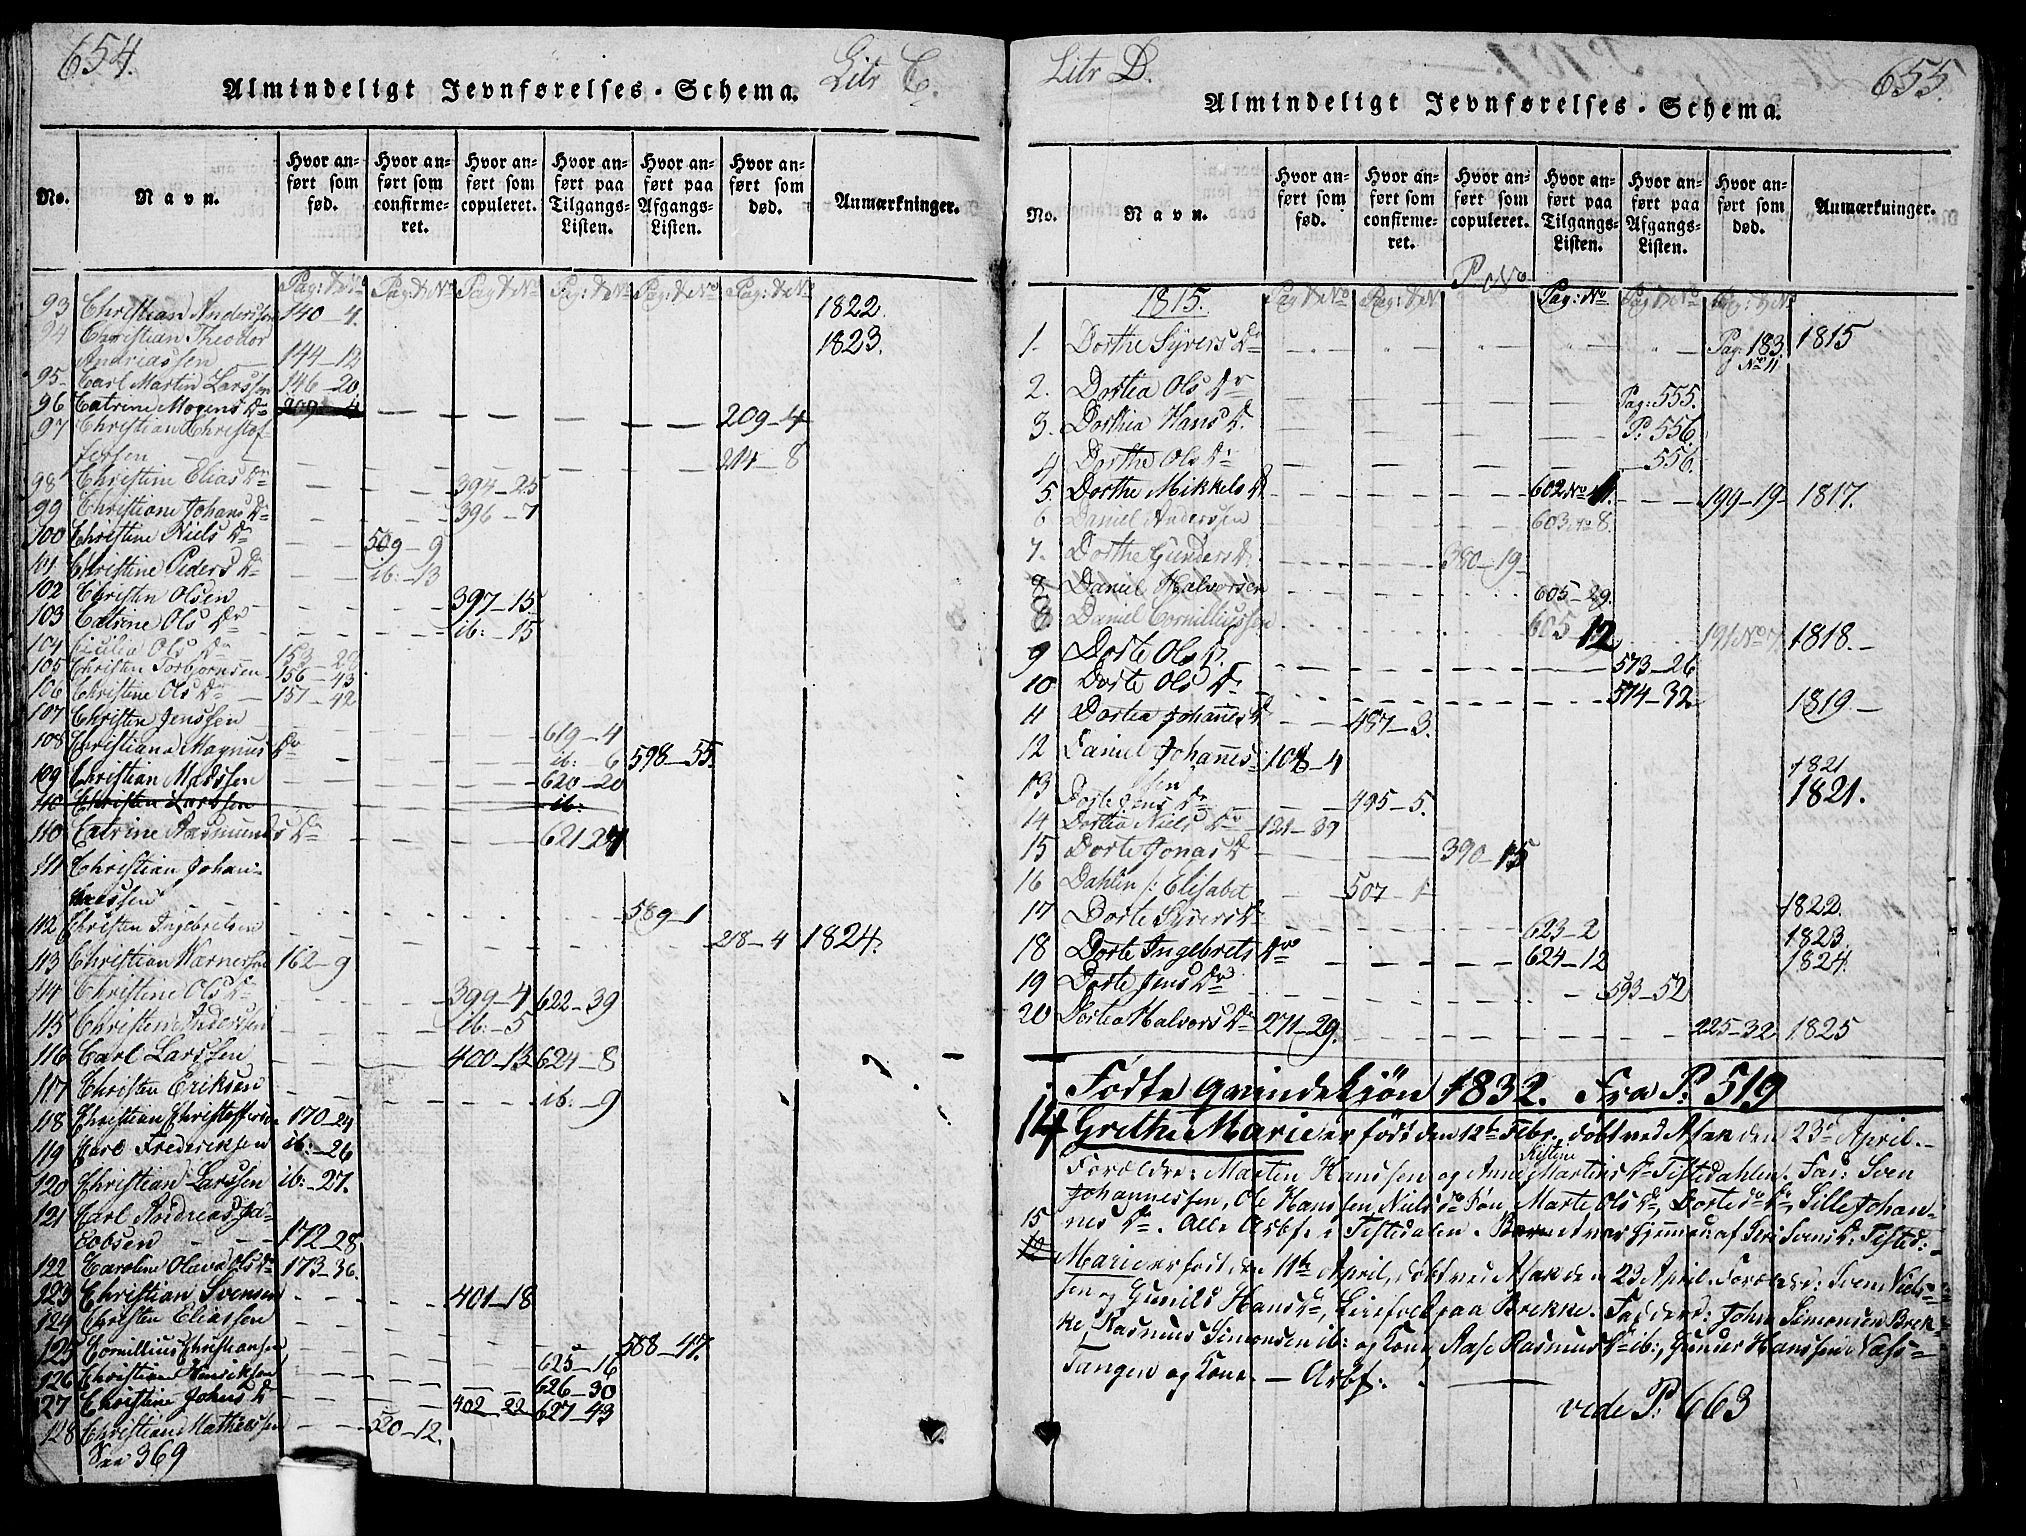 654.
Litr C.
Almindeligt Jevnførelses-Schema.
No.
Navn.
Hvor anført som fød.
Hvor anført som confirmeret.
Hvor anført som copuleret.
Hvor anført paa Tilgangs-Listen.
Hvor anført paa Afgangs-Listen.
Hvor anført som død.
Anmærkninger.
Pag: & No Pag: & No Pag & No Pag: & No Pag: & No Pag: & No
93 Christian Anderssen 140 4. 1822.
94 Christian Theodor
Andreassen 144-12 1823.
95 Carl Martin Larssen 146-20
96 Catrine Mogens Dr 209-4 209-4
97 Christian Christof-
fersen 214-8
98 Christine Elias Dr 394-25
99 Christiane Johans Dr 396-7
100 Christine Niels Dr 509-9
101 Christine Peders Dr ib:-13
102 Christen Olsen 397-15
103 Catrine Ols Dr ib:-15
104 Cicilia Ols Dr 153-20
105 Christen Torbjørnsen 156-43
106 Christine Ols Dr 157-42
107 Christen Jenssen 619-4
108 Christiana Magnus Dr ib: 6 598-55.
109 Christian Madssen 620-20
110 Christen Larssen ib:
110 Catrine Rasmunds Dr 621-24
111 Christian Johan-
nessen 589-1
112 Christen Ingebretsen 218-4 1824.
113 Christian Warnersen 162-9
114 Christine Ols Dr 399-4 622-39
115 Christen Anderssen ib:-5
116 Carl Larssen 400-13 624-8
117 Christen Eriksen ib:-9
118 Christian Christoffersen 170-24
119 Carl Frederiksen ib:-26
120 Christian Larssen ib:-27.
121 Carl Andreas Ja-
cobsen 172-28
122 Caroline Olava Ols Dr 173-36.
123 Christian Svensen 401-18
124 Christen Eliassen 588-47.
125 Cornillius Christiansen 625-16
126 Christian Henriksen 626-30
127 Christine Johns Dr 402-22 627-43
128 Christian Mathiassen 520-12.
See 369
Litr D.
655.
Almindeligt Jevnførelses-Schema.
No.
Navn.
Hvor anført som fød.
Hvor anført som confirmeret.
Hvor anført som copuleret.
Hvor anført paa Tilgangs-Listen.
Hvor anført paa Afgangs-Listen.
Hvor anført som død.
Anmærkninger.
1815. Pag & No Pag: & N P No Pag: No Pag & No Pag: & No
1. Dorthe Syvers Dr Pag: 183. No 11 1815
2. Dortea Ols Dr Pag: 555.
3. Dorthia Hans D. P: 556.
4 Dorthe Ols Dr 556.
5 Dorthe Mikkels D 602 No 11. 199-19- 1817.
6 Daniel Anderssen 603 No 8.
7. Dorthe Gunders D. 380-19
8. Daniel Halvorsen 605-29.
8 Daniel Cornilliussen 605 12 191 No 7. 1818.-
9 Dorte Ols D. 573-26
10 Dorte Ols Dr 574-32 1819-
11 Dortea Johannes D 487-3.
12 Daniel Johannes- 108-4
sen 1821
13 Dorte Jens Dr 495-5. 1821.
14 Dortea Niels Dr 121-39
15 Dorte Jonas D 390-15
16 Dahlin /: Elisabet 507-1
17 Dorte Syvers Dr 623-2 1822.
18 Dorte Ingebrets Dr 624-12 1823.
1824.
19 Dorte Jens Dr 593-52
20 Dortea Halvors Dr 271-29. 225-32 1825
Fødte qvindekjøn 1832. Fra P: 519
14 Grethe Marie er født den 12te Febr. døbt ved Asak den 23d April.-
Forældre: Martin Hanssen og Anne Kistine Martins Dr Tistedahlen. Fad: Sven
Johannessen, Ole Hanssen, Niels do Søn, Marte Ols Dr, Dorte do Dr, Sille Johan-
nes Dr. Alle Arbf. i Tistedalen. Barnet var hjemmedøbt af Siri Svens D: Tisted:-
15 Marie er født den 11te April, døbt ved Asak den 23 April. Forældre: Svend Niels-
sen og Gunild Hans Dr, Leiefolk paa Brekke. Fadderes: John Simonsen Brek-
ke, Rasmus Simonsen ib: og Kone, Aase Rasmus Dr ib:, Gunder Hanssen Næs-
Tangen og Kone. - Arbf:.
vide P: 663